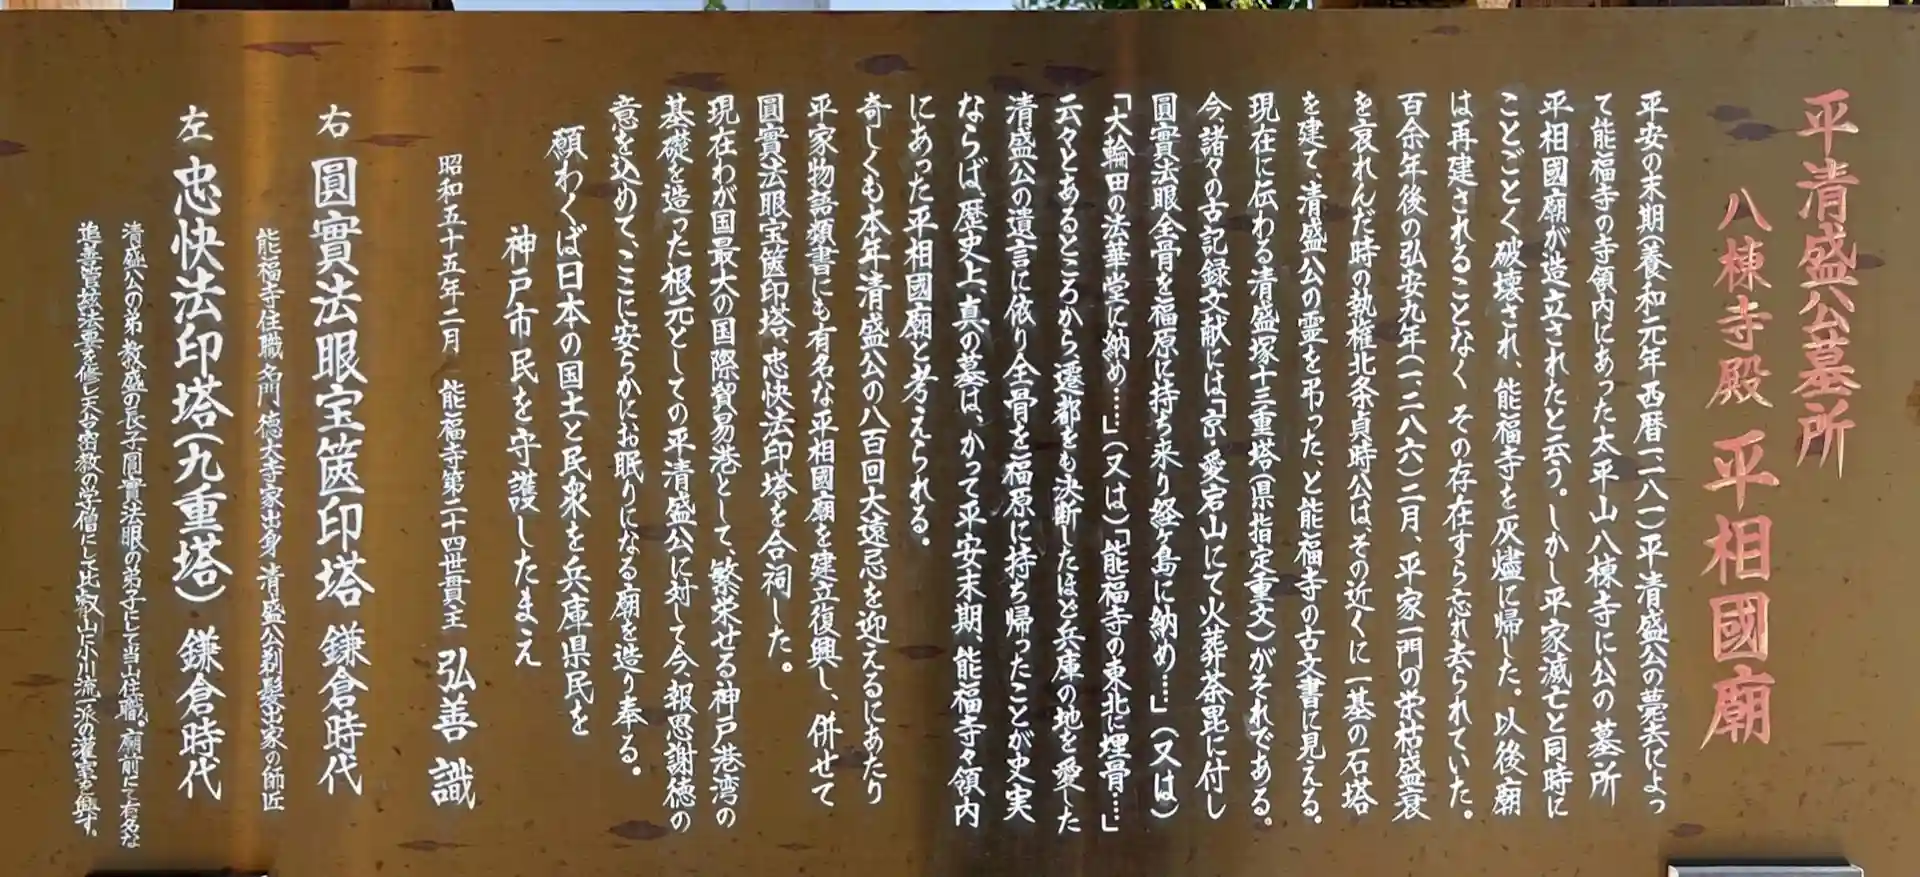 平清盛公墓所
八棟寺殿 平相國廟
平安の末期(養和元年西暦一一八一)平清盛公の薨去によっ
て能福寺の寺領内にあった太平山八棟寺に公の墓所
平相國廟が造立されたと云う。しかし平家滅亡と同時に
ことごとく破壊され、能福寺を灰燼に帰した。以後廟
は再建されることなく その存在すら忘れ去られていた。
百余年後の弘安九年(一、二八六)二月、平家一門の栄枯盛衰
を哀れんだ時の執権北条貞時公は、その近くに一基の石塔
を建て、清盛公の霊を弔った、と能福寺の古文書に見える。
現在に伝わる清盛塚十三重塔(県指定重文)がそれである。
今、諸々の古記録文献には「京、愛宕山にて火葬荼毘に付し
圓實法眼全骨を福原に持ち来り経ヶ島に納め…」(又は)
「大輪田の法華堂に納め…」(又は)「能福寺の東北に埋骨…」
云々とあるところから、遷都をも決断したほど兵庫の地を愛した
清盛公の遺言に依り全骨を福原に持ち帰ったことが史実
ならば、歴史上、真の墓は、かって平安末期、能福寺々領内
にあった平相國廟と考えられる。
奇しくも本年清盛公の八百回大遠忌を迎えるにあたり
平家物語類書にも有名な平相國廟を建立復興し、併せて
圓實法眼宝篋印塔、忠快法印塔を合祠した。
現在わが国最大の国際貿易港として、繁栄せる神戸港湾の
基礎を造った根元としての平清盛公に対して今、報恩謝徳の
意を込めて、ここに安らかにお眠りになる廟を造り奉る。
願わくば日本の国土と民衆を兵庫県民を
神戸市民を守護したまえ
昭和五十五年二月 能福寺第二十四世貫主 弘善 識
右 圓實法眼宝篋印塔 鎌倉時代
能福寺住職 名門 徳大寺家出身 清盛公剃髪出家の師匠
左 忠快法印塔(九重塔) 鎌倉時代
清盛公の弟 教盛の長子 圓實法眼の弟子にして当山住職、廟前にて有名な
追善管絃法要を修し天台密教の学僧にして比叡山に小川流一派の灌室を興す。